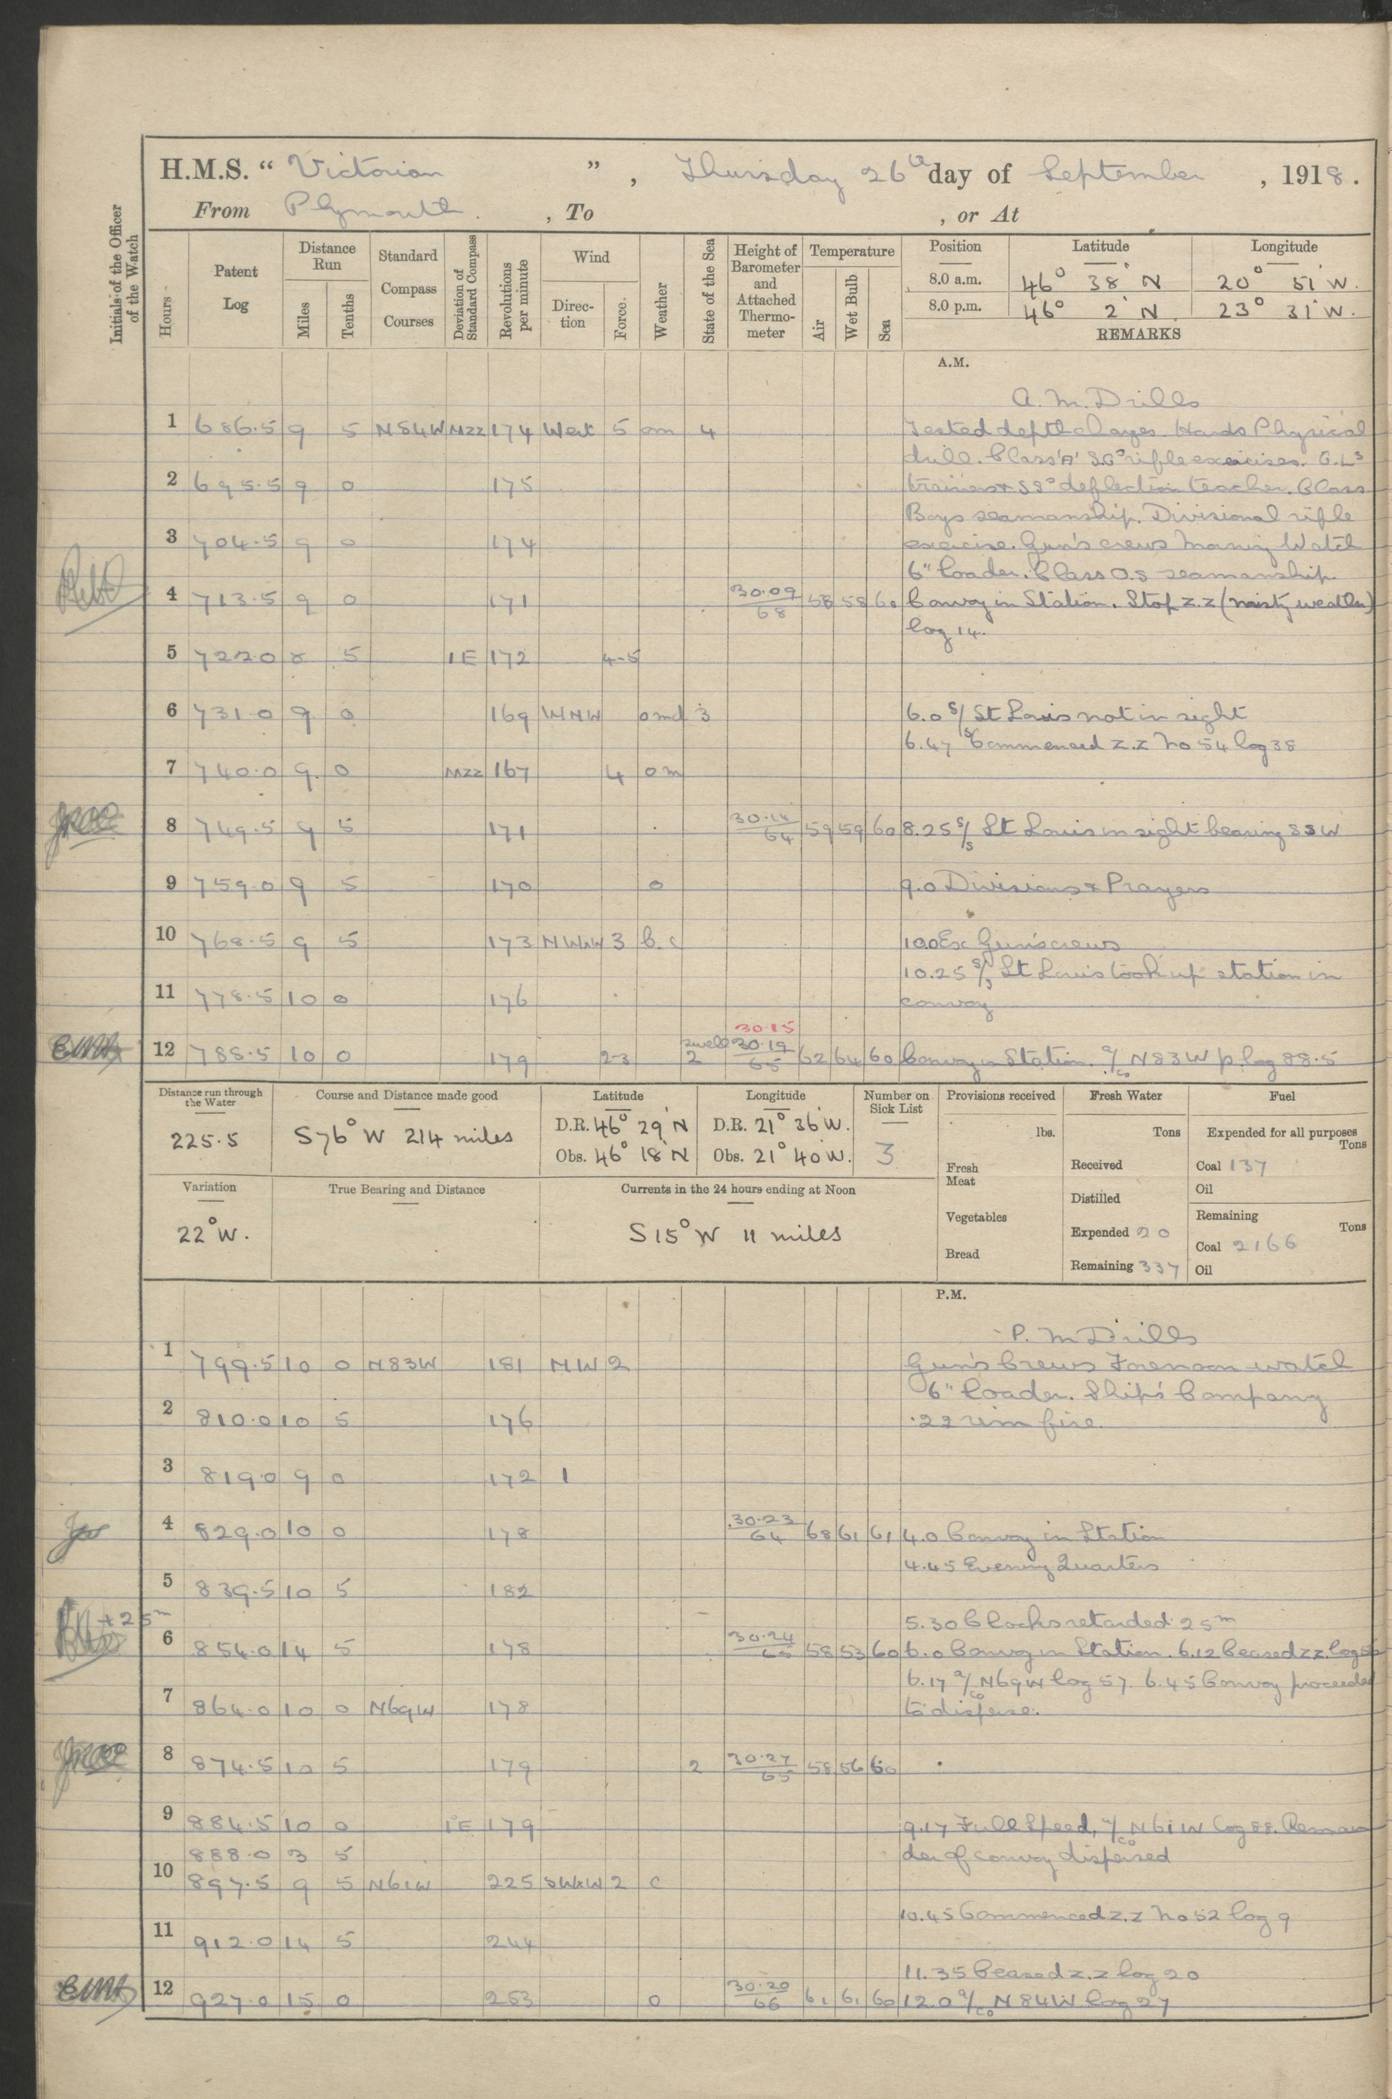 H.M.S. “ Victorian ”, Thursday 26th day of September, 1918.
From Plymouth. , To , or At
Initials of the Officer of the Watch
Hours
Patent Log
Distance Run
Miles
Tenths
Standard Compass Courses
Deviation of Standard Compass
Revolutions per minute
Wind
Direction
Force.
Weather
State of the Sea
Height of Barometer and Attached Thermometer
Temperature
Air
Wet Bulb
Sea
Position Latitude Longitude
8.0 a.m. 46° 38' N 20° 51' W.
8.0 p.m. 46° 2' N. 23° 31' W.
REMARKS
A.M.
A.M. Drills
1 686.5 9 5 N84W MZZ 174 West 5 om 4 Tested depth charges. Hands Physical
drill. Class 'A' S.G's rifle exercises. G.L's
2 695.5 9 0 175 trainers & SS° deflection teacher. Class
Boys seamanship. Divisional rifle
3 704.5 9 0 174 exercise. Gun's crews Morning Watch
6" loader. Class O.S seamanship.
4 713.5 9 0 171 30.09 68 58 58 60 Convoy in Station. Stop Z.Z (misty weather)
log 14.
5 722.0 8 5 1E 172 4-5
6 731.0 9 0 169 WNW omd 3 6.0 S/S St Louis not in sight
6.47 Commenced Z.Z No 54 log 38
7 740.0 9 0 MZZ 167 4 om
8 749.5 9 5 171 30.14 64 59 59 60 8.25 S/S St Louis in sight bearing S3W
9 759.0 9 5 170 o 9.0 Divisions & Prayers
10 768.5 9 5 173 NWxW 3 b.c 10.0 Ex Gun's crews
10.25 S/S St Louis took up station in
11 778.5 10 0 176 convoy
30.15
12 788.5 10 0 179 2-3 swell 2 30.19 65 62 64 60 Convoy in Station. a/co N83W p. log 88.5
Distance run through the Water
225.5
Course and Distance made good
S76°W 214 miles
Latitude
D.R. 46° 29' N
Obs. 46° 18' N
Longitude
D.R. 21° 36' W.
Obs. 21° 40' W.
Number on Sick List
3
Provisions received
lbs.
Fresh Meat
Vegetables
Bread
Fresh Water
Tons
Received
Distilled
Expended 20
Remaining 337
Fuel
Expended for all purposes
Tons
Coal 137
Oil
Remaining
Tons
Coal 2166
Oil
Variation
22° W.
True Bearing and Distance
Currents in the 24 hours ending at Noon
S15°W 11 miles
P.M.
P.M Drills
1 799.5 10 0 N83W 181 NW 2 Gun's Crews Forenoon watch
6" loader. Ship's Company
2 810.0 10 5 176 .22 rim fire.
3 819.0 9 0 172 1
4 829.0 10 0 178 30.23 64 68 61 61 4.0 Convoy in Station
4.45 Evening Quarters
5 839.5 10 5 182
+25m 5.30 Clocks retarded 25m
6 854.0 14 5 178 30.24 65 58 53 60 6.0 Convoy in Station. 6.12 Ceased ZZ. log
6.17 a/co N69W log 57. 6.45 Convoy proceeded
7 864.0 10 0 N69W 178 to disperse.
8 874.5 10 5 179 2 30.27 65 58 56 60
9 884.5 10 0 1E 179 9.17 Full Speed, a/co N61W log 88. Remain
888.0 3 5 der of convoy dispersed
10 897.5 9 5 N61W 225 SWxW 2 c
10.45 Commenced Z.Z No 52 log 9
11 912.0 14 5 244
11.35 Ceased Z.Z log 20
12 927.0 15 0 253 o 30.20 66 61 61 60 12.0 a/co N84W log 27